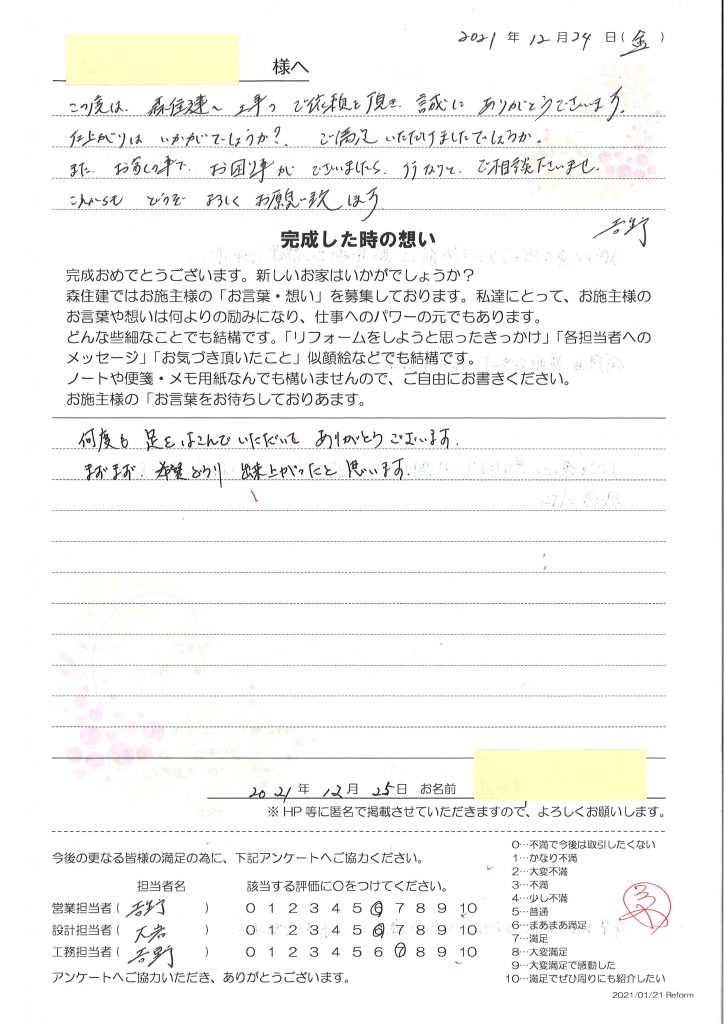 2021 年 12 月 24 日 (金)
様へ
この度は、森住建へ工事のご依頼を頂き、誠にありがとうございます。
仕上がりはいかがでしょうか？ ご満足いただけましたでしょうか。
また、お家の事で、お困り事がございましたら、何なりとご相談下さいませ。
これからもどうぞよろしくお願い致します。
吉野
完成した時の想い
完成おめでとうございます。新しいお家はいかがでしょうか？
森住建ではお施主様の「お言葉・想い」を募集しております。私達にとって、お施主様の
お言葉や想いは何よりの励みになり、仕事へのパワーの元でもあります。
どんな些細なことでも結構です。「リフォームをしようと思ったきっかけ」「各担当者への
メッセージ」「お気づき頂いたこと」似顔絵などでも結構です。
ノートや便箋・メモ用紙なんでも構いませんので、ご自由にお書きください。
お施主様の「お言葉をお待ちしておりあます。
何度も足をはこんでいただいて ありがとうございます。
まずまず、希望どうり 出来上がったと思います。
2021 年 12 月 25 日 お名前
※ HP 等に匿名で掲載させていただきますので、よろしくお願いします。
今後の更なる皆様の満足の為に、下記アンケートへご協力ください。
担当者名 該当する評価に〇をつけてください。
営業担当者 ( 吉野 ) 0 1 2 3 4 5 6 7 8 9 10
設計担当者 ( 大岩 ) 0 1 2 3 4 5 6 7 8 9 10
工務担当者 ( 吉野 ) 0 1 2 3 4 5 6 7 8 9 10
アンケートへご協力いただき、ありがとうございます。
0…不満で今後は取引したくない
1…かなり不満
2…大変不満
3…不満
4…少し不満
5…普通
6…まあまあ満足
7…満足
8…大変満足
9…大変満足で感動した
10…満足でぜひ周りにも紹介したい
2021/01/21 Reform